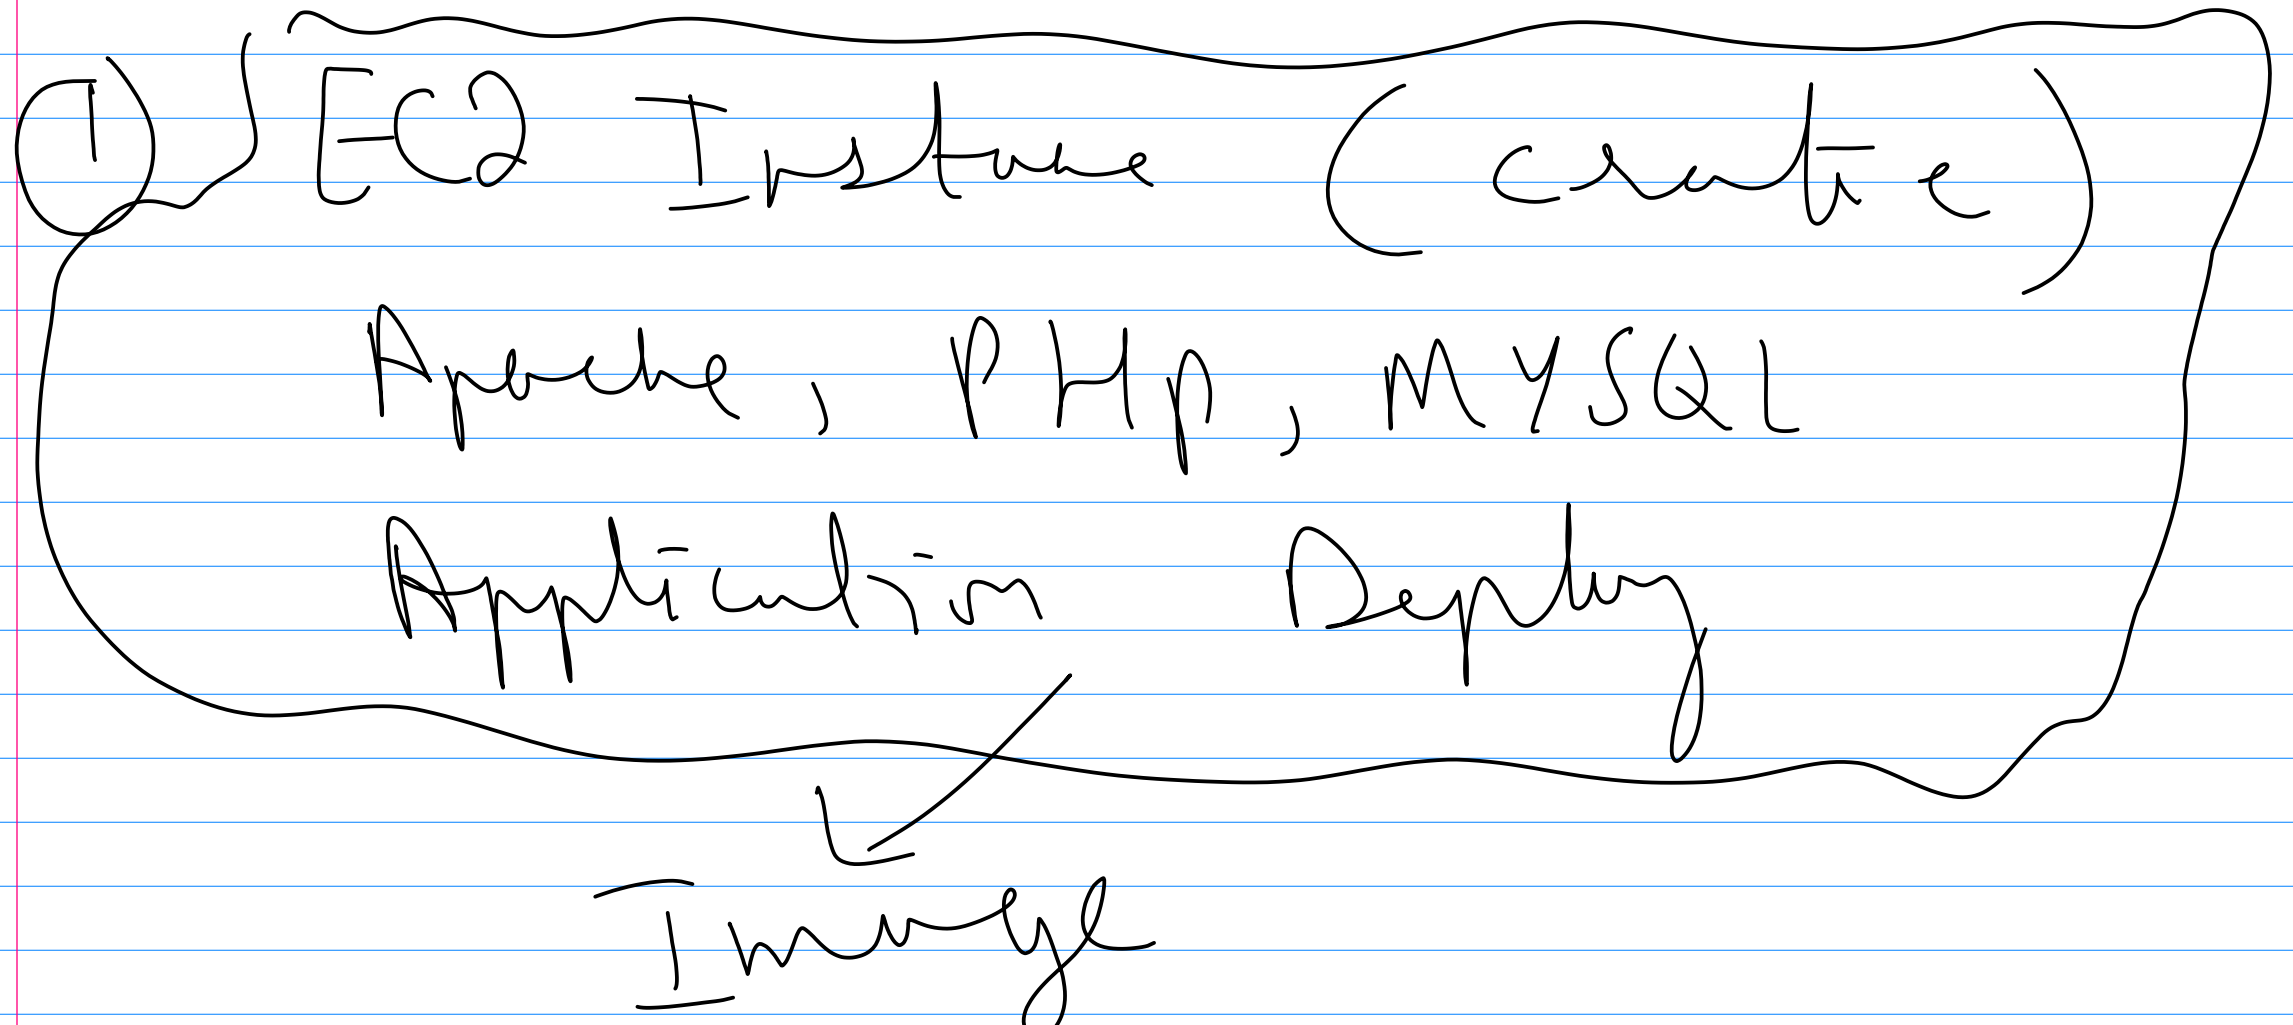 ① EC2 Instance (Create)
Apache, PHP, MYSQL
Application Deploy
Image